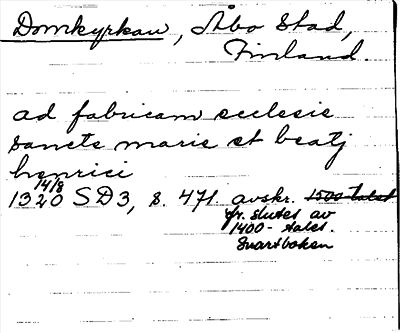 Domkyrkan, Åbo Stad,
Finland.
ad fabricam ecclesie
sancte marie et beatj
henrici
14/8
1320 SD3, s. 471. avskr. 1500-talet
fr. slutet av
1400-talet.
Svartboken